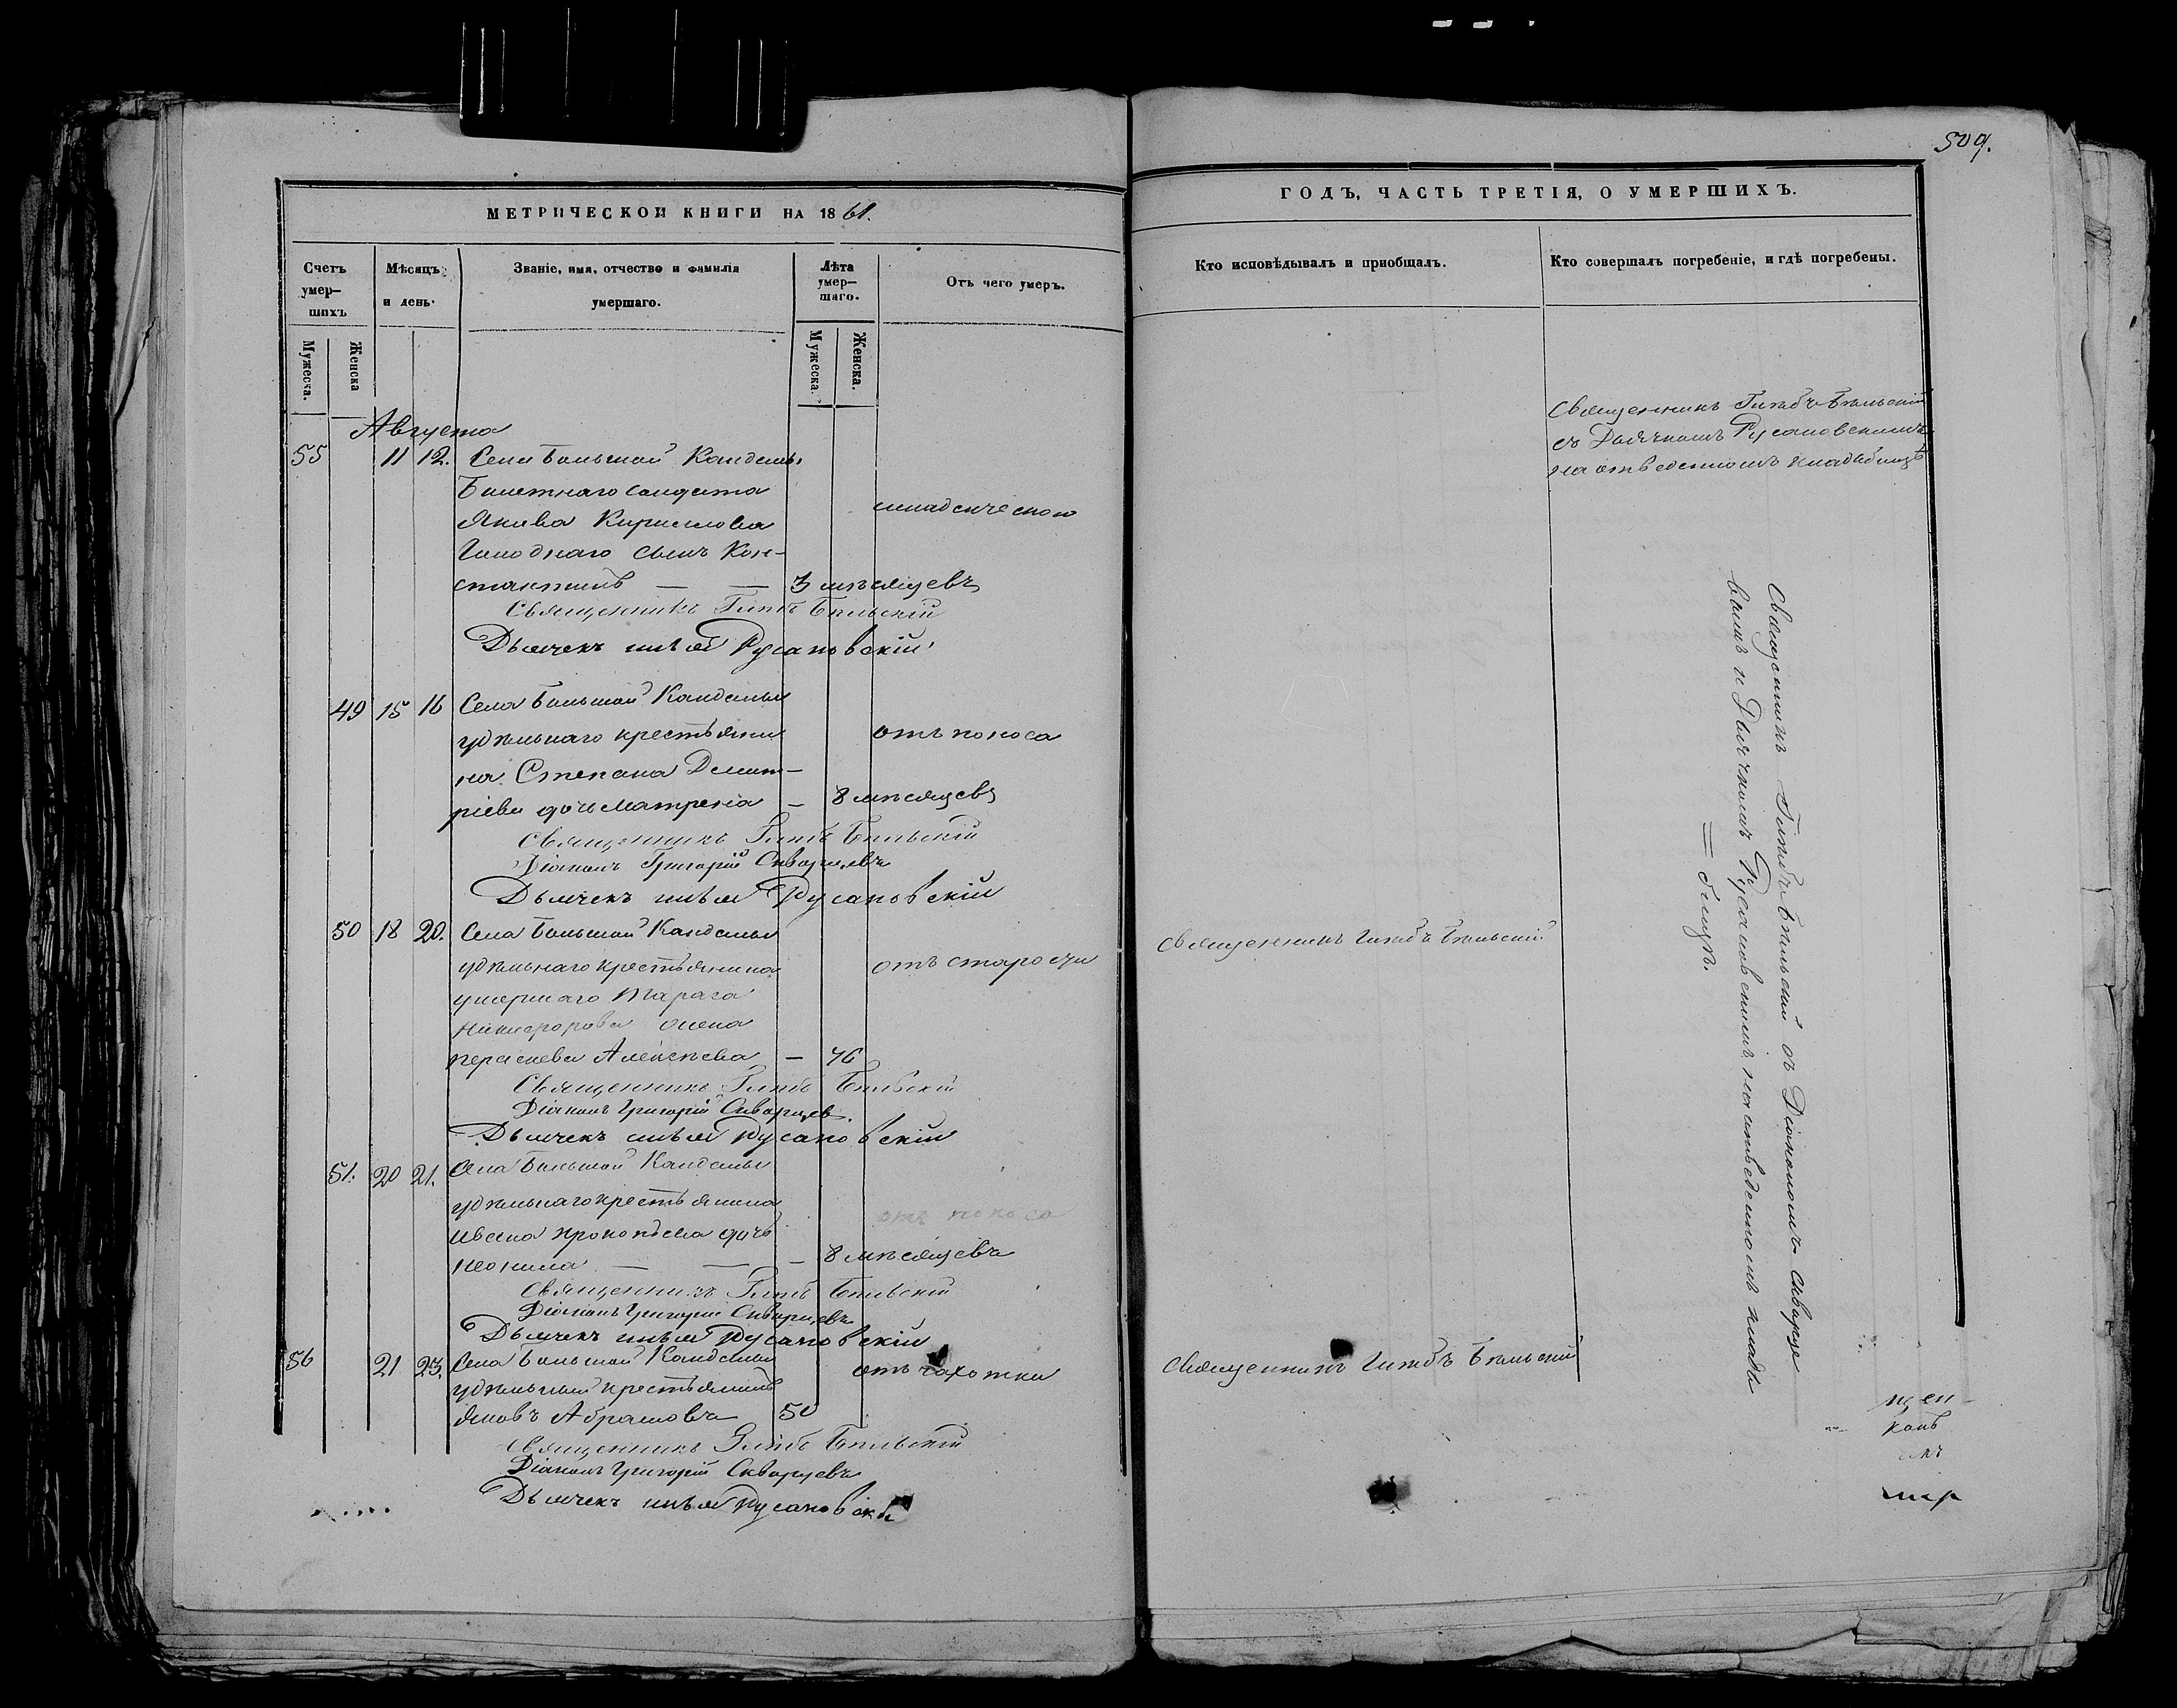 509.
МЕТРИЧЕСКОЙ КНИГИ НА 1861.
Счетъ умер-шихъ
Мѣсяцъ и день.
Званіе, имя, отчество и фамилія умершаго.
Лѣта умер-шаго.
Отъ чего умеръ.
Мужеска.
Женска
Мужеска.
Женска.
Августа
55 11 12. Села Большой Кандалы
билетнаго солдата
Якова Кириллова
сынъ Кон-
стантинъ — — 3 мѣсяцевъ
младенческою
Священникъ Глѣбъ Бѣльскій
Дьячекъ Русановскій
49 15 16 Села Большой Кандалы
удѣльнаго крестьяни
на Степана Димит-
ріева дочь Матрена — 8 мѣсяцевъ
отъ поноса
Священникъ Глѣбъ Бѣльскій
Діаконъ Григорій Скворцевъ
Дьячекъ Русановскій
50 18 20. Села Большой Кандалы
удѣльнаго крестьянина
умершаго Тараса
Никифорова жена
Параскева Алексѣева — 76
отъ старости
Священникъ Глѣбъ Бѣльскій
Діаконъ Григорій Скворцев.
Дьячекъ Русановскій
51. 20 21. Села Большой Кандалы
удѣльнаго крестьянина
Ивана Прокопьева дочь
Неонила — — — 8 мѣсяцевъ
отъ поноса
Священникъ Глѣбъ Бѣльскій
Діаконъ Григорій Скворцевъ
Дьячекъ Русановскій
56 21 23. Села Большой Кандалы
удѣльный крестьянинъ
Яковъ Абрамовъ 50
отъ чахотки
Священникъ Глѣбъ Бѣльскій
Діаконъ Григорій Скворцевъ
Дьячекъ Русановскій
ГОДЪ, ЧАСТЬ ТРЕТІЯ, О УМЕРШИХЪ.
Кто исповѣдывалъ и пріобщалъ.
Кто совершалъ погребеніе, и гдѣ погребены.
Священникъ Глѣбъ Бѣльскій
съ Дьячкомъ Русановскимъ
на отведенномъ кладбищѣ
Священникъ Глѣбъ Бѣльскій съ Діакономъ Скворце
вымъ и Дьячкомъ Русановскимъ на отведенномъ кладъ
= бищѣ.
Священникъ Глѣбъ Бѣльскій
Священникъ Глѣбъ Бѣльскій
щен-
конъ